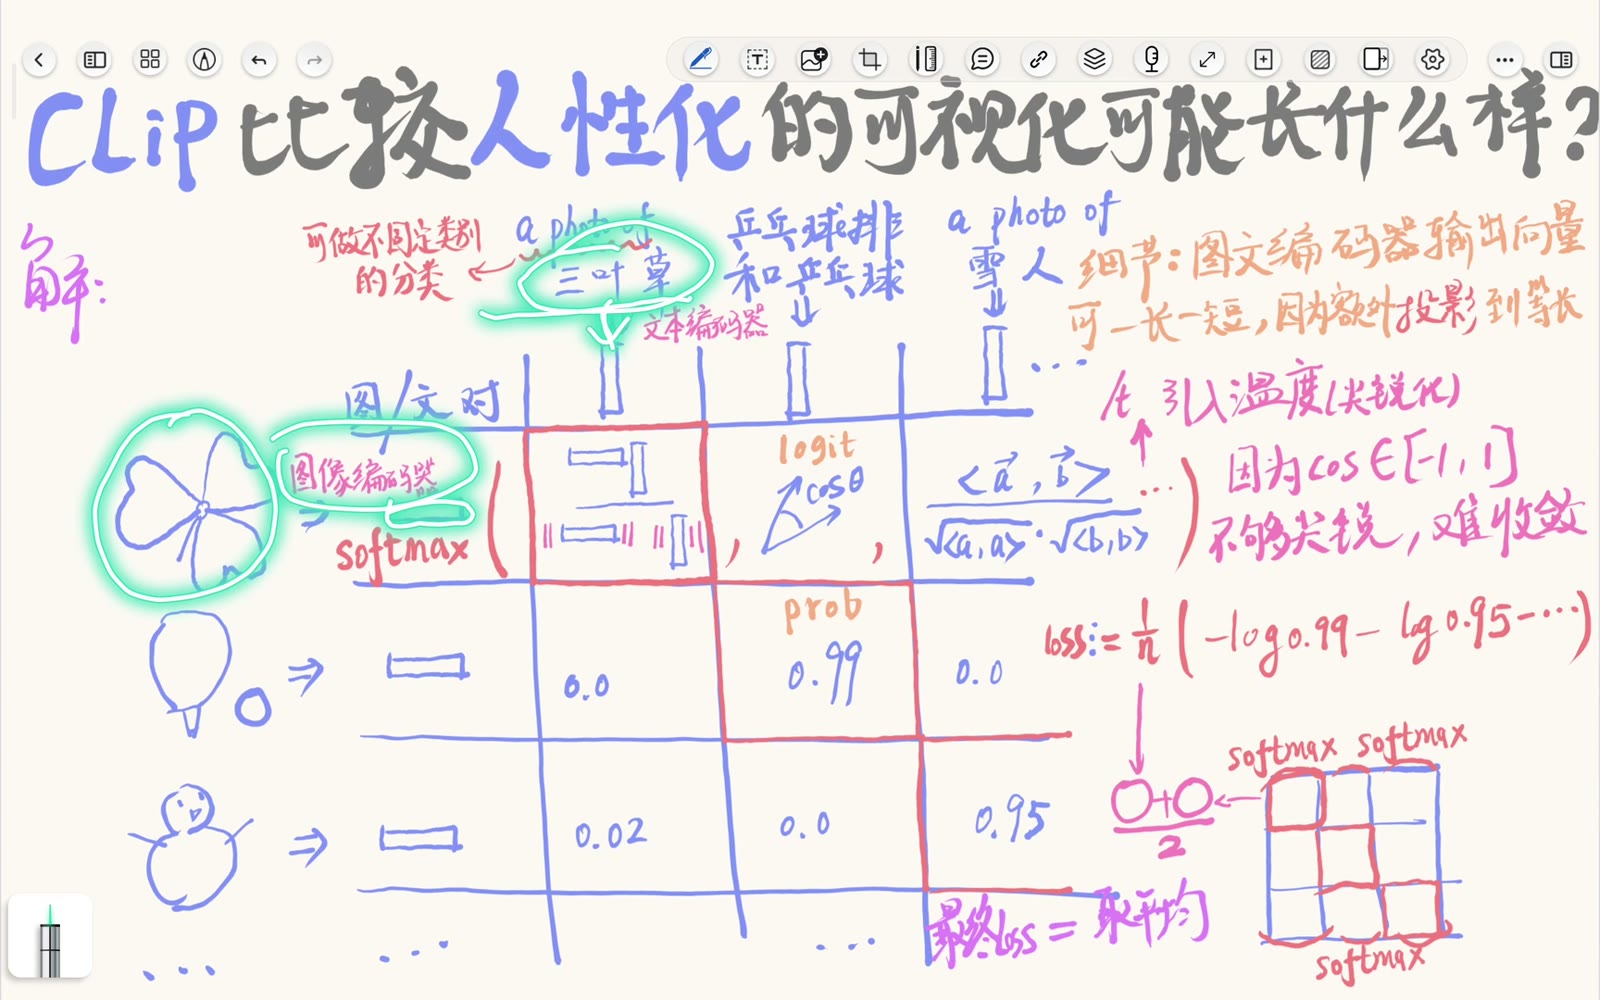 CLip 比较人性化的可视化可能长什么样?
解:
可做不固定类别
的分类
a photo of
三叶草
文本编码器
乒乓球排
和乒乓球
a photo of
雪人
细节:图文编码器输出向量
可一长一短,因为额外投影到等长
...
图/文对
图像编码器
softmax (
logit
cosθ
<a, b>
√<a,a> · √<b,b>
, , ... )
/t 引入温度(尖锐化)
因为cos∈[-1, 1]
不够尖锐,难收敛
prob
0.0 0.99 0.0
loss:= 1/n ( -log0.99 - log0.95 - ... )
0.02 0.0 0.95
○+○
2
softmax softmax
softmax
最终loss = 取平均
... ... ...